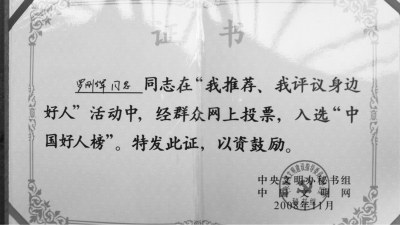 证书
同志在“我推荐、我评议身边
好人”活动中，经群众网上投票，入选“中
国好人榜”。特发此证，以资鼓励。
中央文明办秘书组
中国文明网
2008年11月